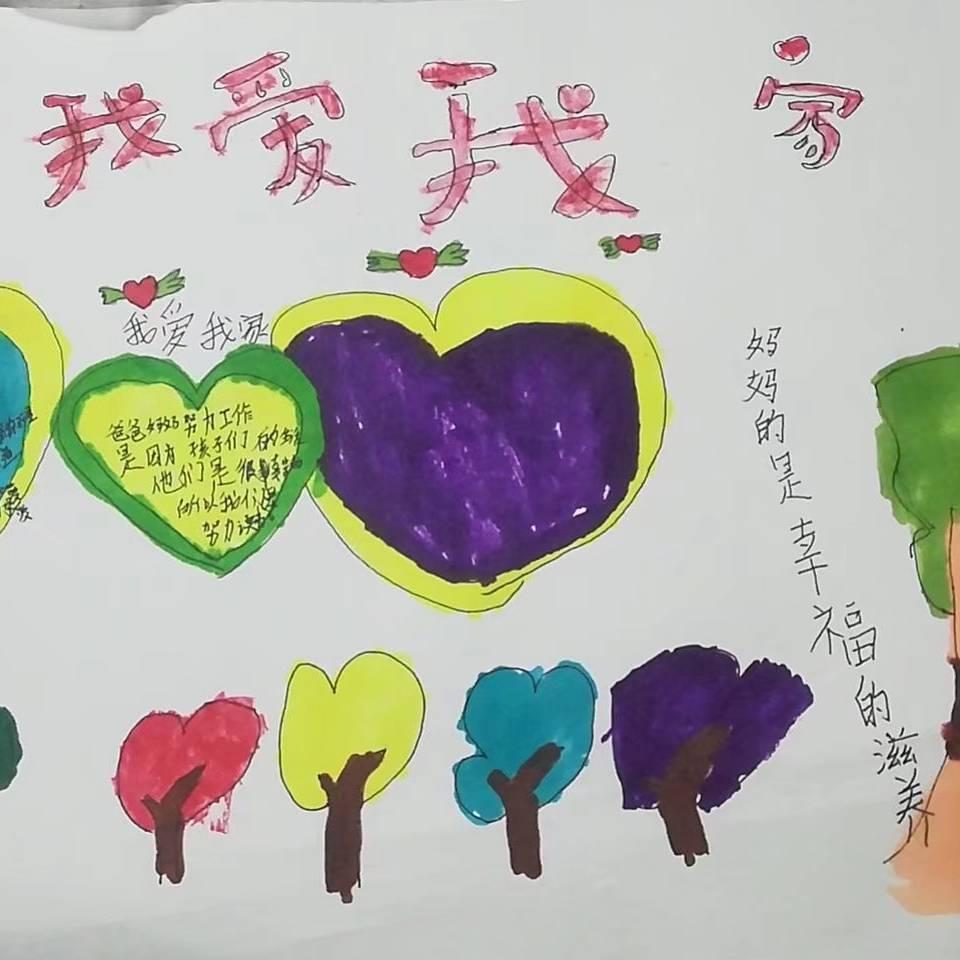 我爱我家
我爱我家
爸爸妈妈努力工作
是因为孩子们
他们是很
所以我们
努力
妈妈的是幸福的滋养